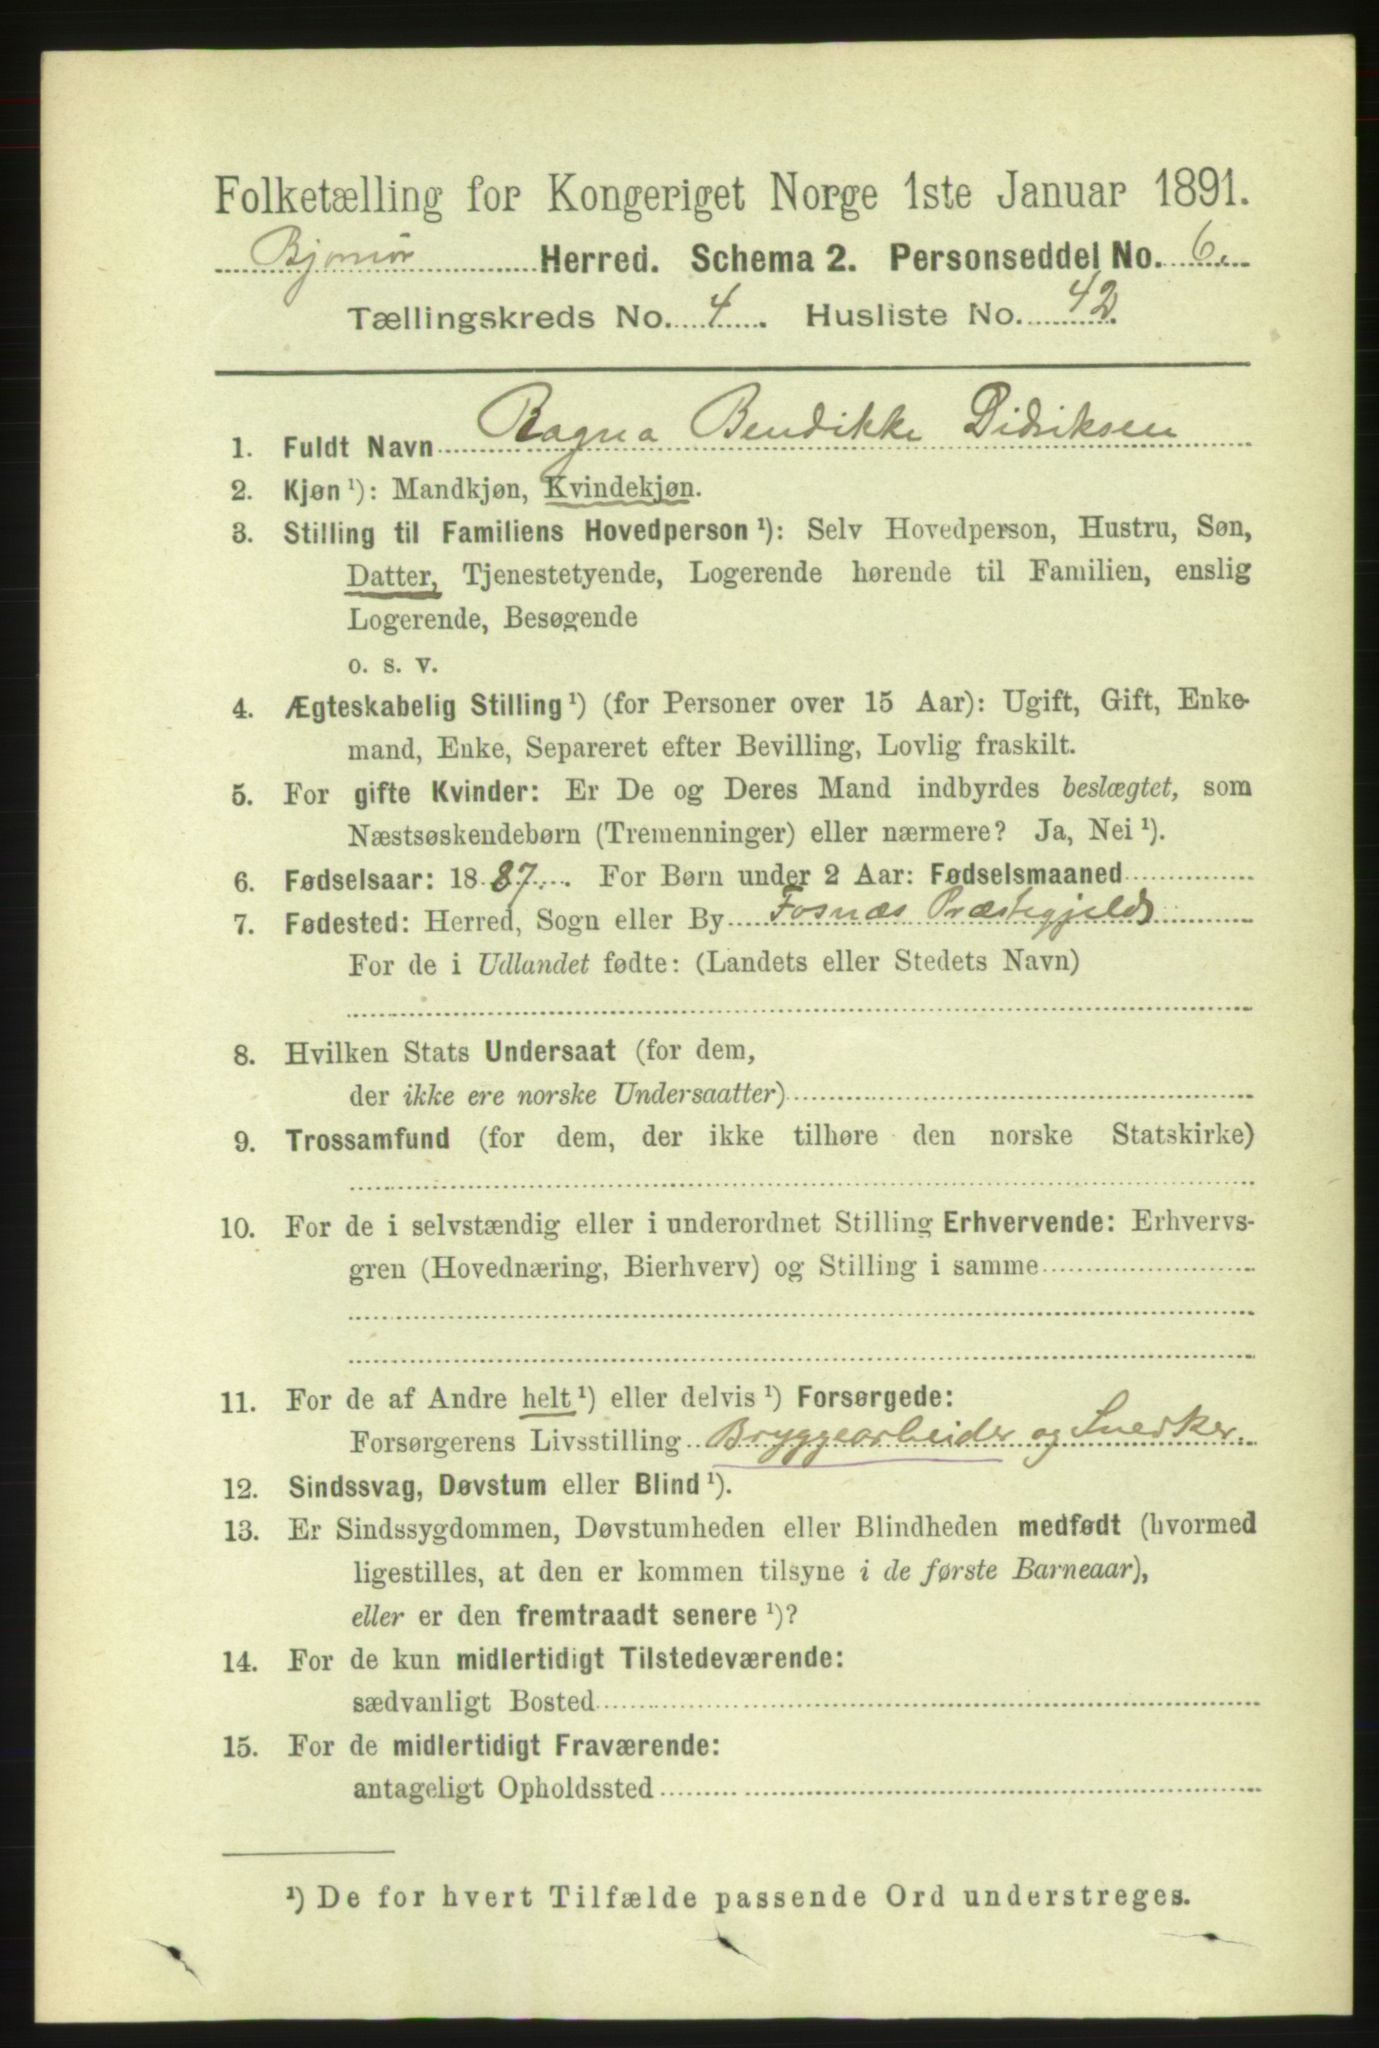 Folketælling for Kongeriget Norge 1ste Januar 1891.
Bjørnør Herred. Schema 2. Personseddel No. 6.
Tællingskreds No. 4. Husliste No. 42.
1. Fuldt Navn Ragna Bendikke Didriksen
2. Kjøn ¹): Mandkjøn, Kvindekjøn.
3. Stilling til Familiens Hovedperson ¹): Selv Hovedperson, Hustru, Søn,
Datter, Tjenestetyende, Logerende hørende til Familien, enslig
Logerende, Besøgende
o. s. v.
4. Ægteskabelig Stilling ¹) (for Personer over 15 Aar): Ugift, Gift, Enke-
mand, Enke, Separeret efter Bevilling, Lovlig fraskilt.
5. For gifte Kvinder: Er De og Deres Mand indbyrdes beslægtet, som
Næstsøskendebørn (Tremenninger) eller nærmere? Ja, Nei ¹).
6. Fødselsaar: 1887. For Børn under 2 Aar: Fødselsmaaned
7. Fødested: Herred, Sogn eller By Fosnæs Præstegjeld
For de i Udlandet fødte: (Landets eller Stedets Navn)
8. Hvilken Stats Undersaat (for dem,
der ikke ere norske Undersaatter)
9. Trossamfund (for dem, der ikke tilhøre den norske Statskirke)
10. For de i selvstændig eller i underordnet Stilling Erhvervende: Erhvervs-
gren (Hovednæring, Bierhverv) og Stilling i samme
11. For de af Andre helt ¹) eller delvis ¹) Forsørgede:
Forsørgerens Livsstilling Bryggearbeider og Snedker.
12. Sindssvag, Døvstum eller Blind ¹).
13. Er Sindssygdommen, Døvstumheden eller Blindheden medfødt (hvormed
ligestilles, at den er kommen tilsyne i de første Barneaar),
eller er den fremtraadt senere ¹)?
14. For de kun midlertidigt Tilstedeværende:
sædvanligt Bosted
15. For de midlertidigt Fraværende:
antageligt Opholdssted
¹) De for hvert Tilfælde passende Ord understreges.